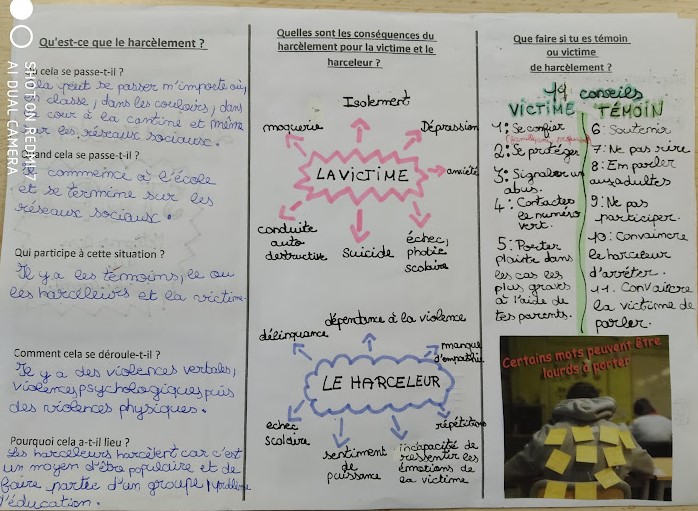 Qu'est-ce que le harcèlement ?
cela se passe-t-il ?
la peut se passer m'importe où,
classe, dans les couloirs, dans
cour à la cantine et même
sur les réseaux sociaux.
Quand cela se passe-t-il ?
commence à l'école
et se termine sur les
réseaux sociaux.
Qui participe à cette situation ?
Il y a les témoins, le ou
les harceleurs et la victime
Comment cela se déroule-t-il ?
Il y a des violences verbales,
violences psychologiques puis
des violences physiques.
Pourquoi cela a-t-il lieu ?
Les harceleurs harcèlent car c'est
un moyen d'être populaire et de
faire partie d'un groupe
l'éducation.
Quelles sont les conséquences du
harcèlement pour la victime et le
harceleur ?
Isolement
moquerie
Dépression
LA VICTIME
anxiété
conduite
auto
destructive
Suicide
échec,
phobie
scolaire
dépendance à la violence
délinquance
manque
d'empathie
LE HARCELEUR
echec
scolaire
répétitions
sentiment
de
puissance
incapacité de
ressentir les
émotions de
la victime
Que faire si tu es témoin
ou victime
de harcèlement ?
conseils
VICTIME
1: Se confier
2: Se protéger
3: Signaler un
abus.
4: Contacter
le numéro
vert.
5: Porter
plainte dans
les cas les
plus graves
à l'aide de
tes parents.
TÉMOIN
6: Soutenir
7: Ne pas rire
8: Em parler
aux adultes
9: Ne pas
participer.
10: Convaincre
le harceleur
d'arrêter.
11: Convaincre
la victime de
parler.
Certains mots peuvent être
lourds à porter
SHOT ON REDMI 7
AI DUAL CAMERA